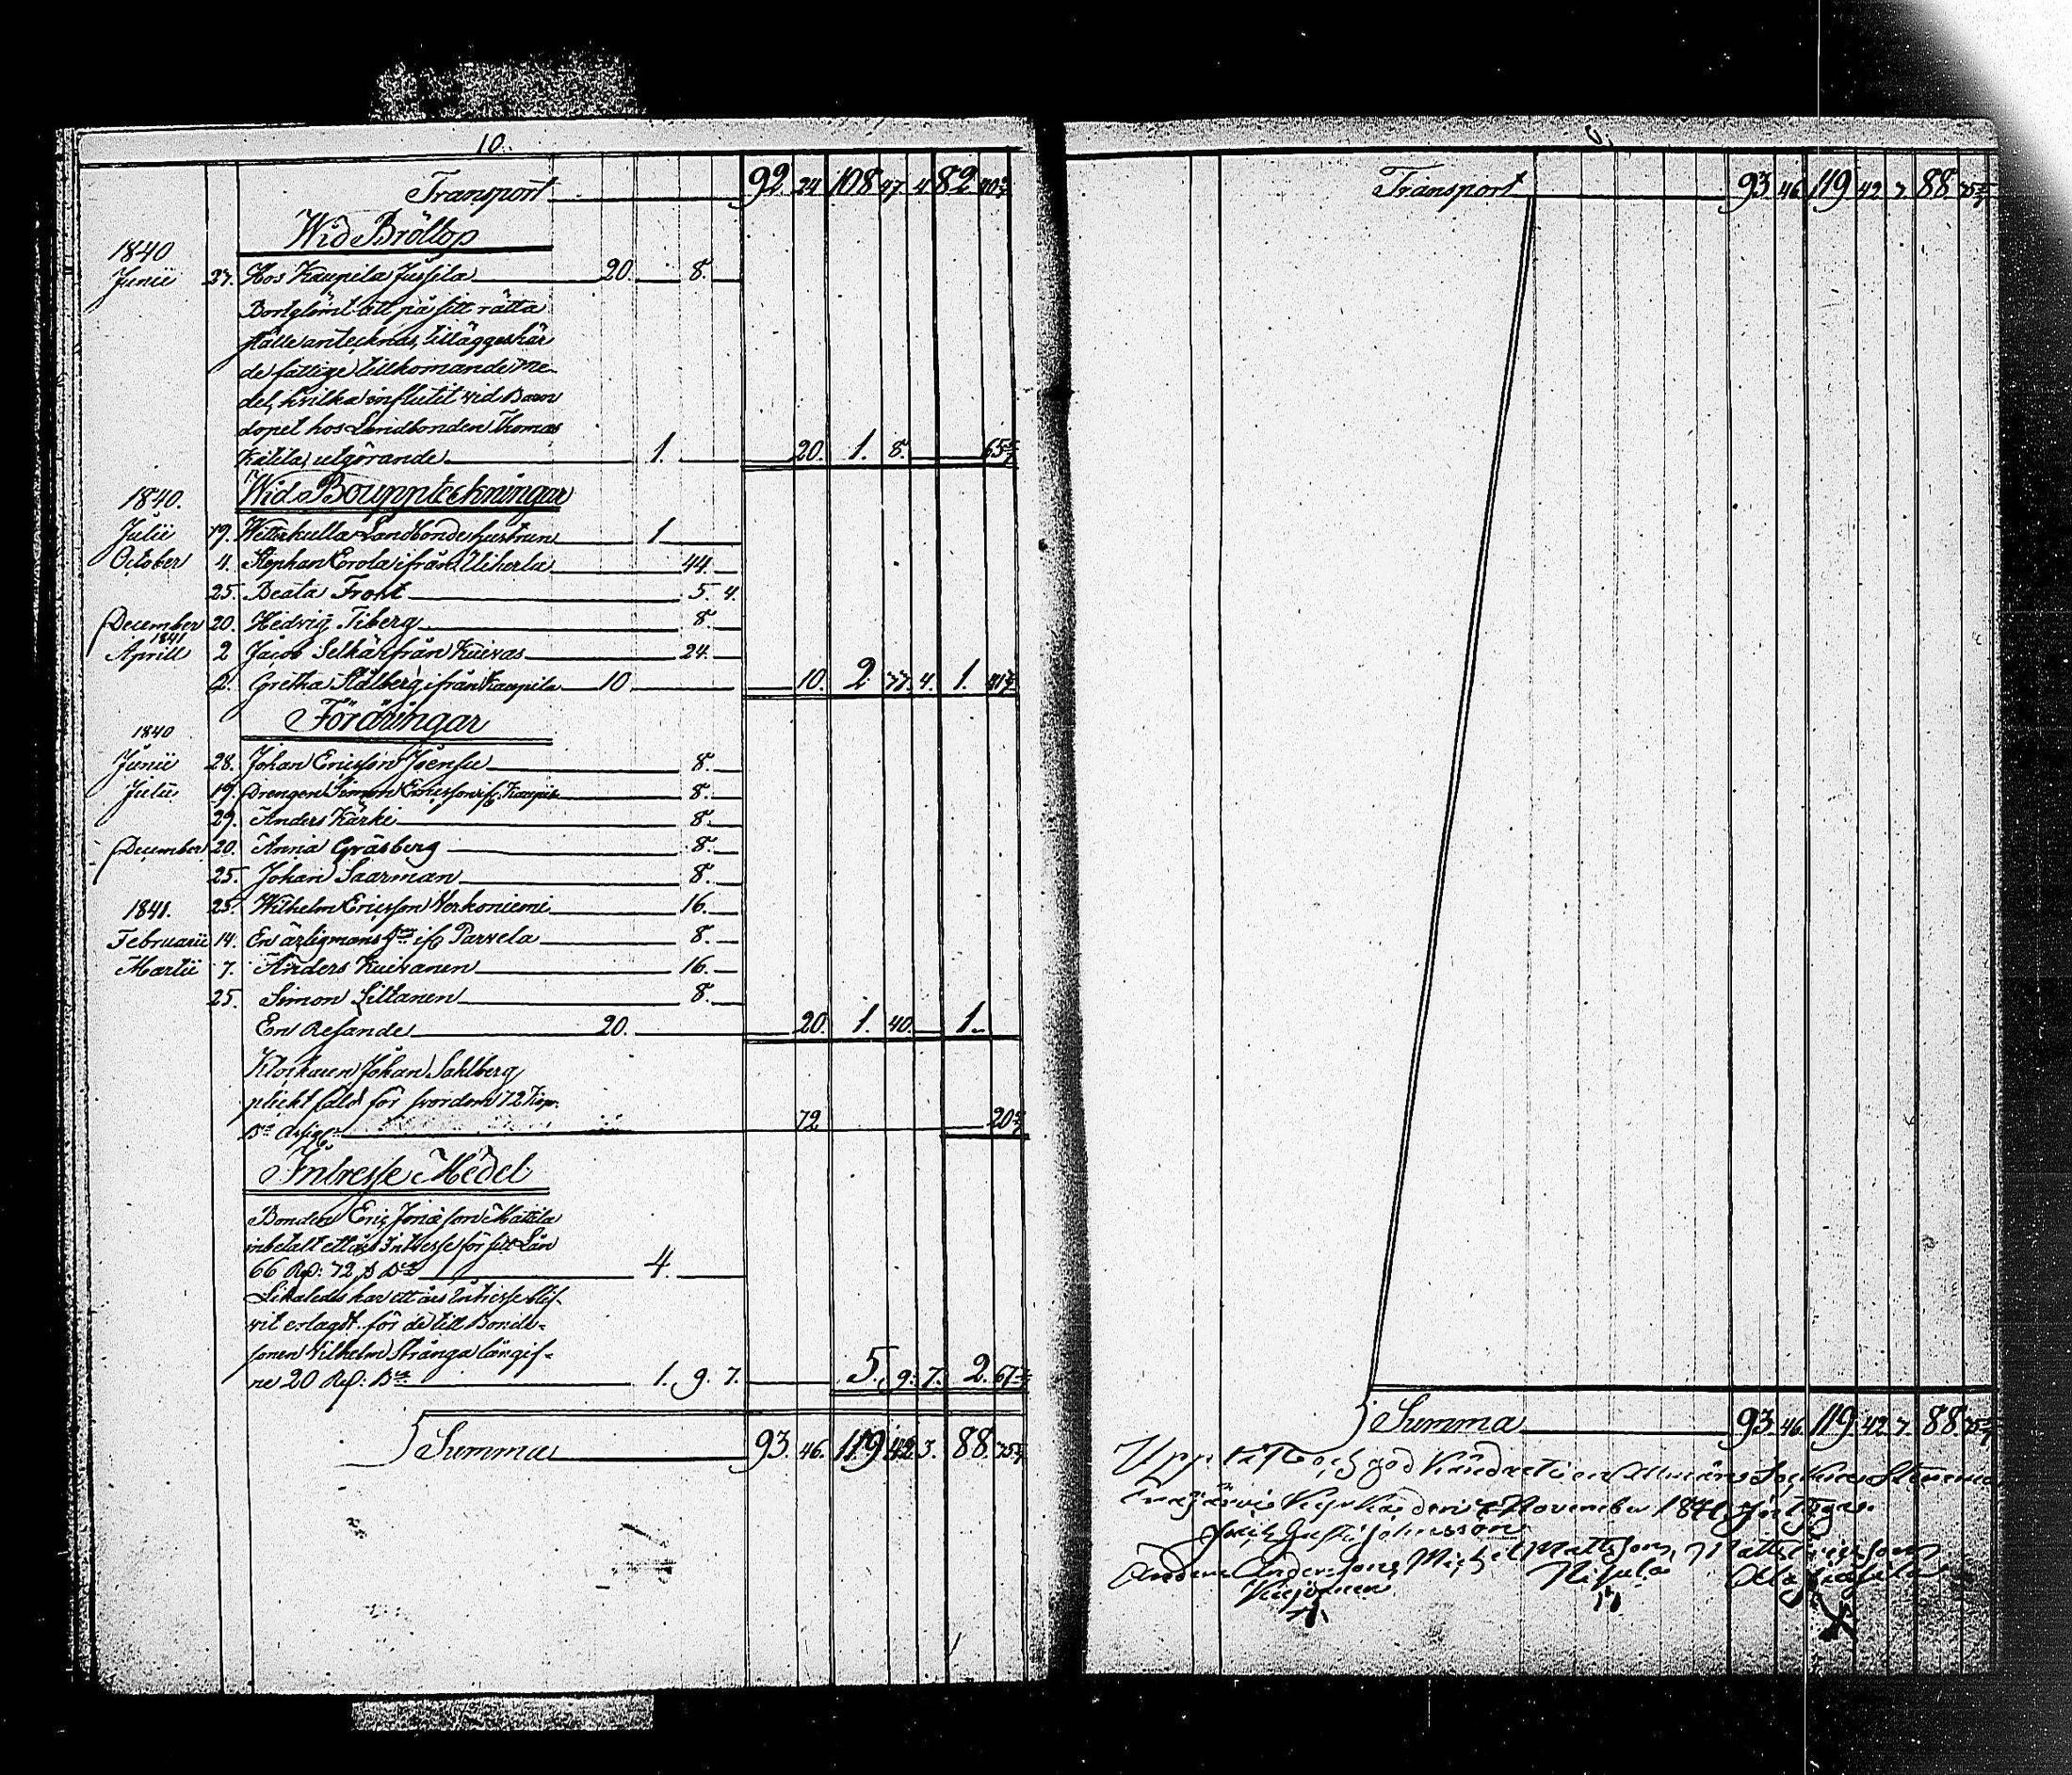 10.
Transport 92. 24. 108. 47. 4. 82. 40
Wid Bröllop
1840
Junii 27. Hos Kaupila Jussila 20. 8.
Bortglömt att på sitt rätta
ställe antecknas, tillägges här
de fattige tillkomande me-
del, hvilka influtit vid Barn
dopet hos Landbonden Thomas
Kätilä, utgörande 1. 20. 1. 8. 65 5/7
Wid Bouppteckningar
1840.
Julii 19. Landbonde hustrun 1
October 4. Stephan Erola ifrån 44.
25. Beata Frost 5. 4.
December 20. Hedvig Tiberg 8.
1841
Aprill 2 Jacob från Kuivas 24.
2. Gretha Stålberg ifrån Kaupila 10 10. 2 77. 4. 1. 41
Föräringar
1840
Junii 28. Johan Ericsson Joensuu 8.
Julii 19. Drengen Simon Ericsson if. Kaupila 8.
29. Anders Kärki 8.
December 20. Anna Gräsberg 8.
25. Johan Saarman 8.
1841. 25. Wilhelm Ericsson Verkoniemi 16.
Februarii 14. En ärlig mans if. Parvela 8.
Martii 7. Anders Kuivanen 16.
25. Simon Siltanen 8.
En Resande 20. 20. 1. 40. 1.
Klockaren Johan Sahlberg
pliktfäld för svordom 72 Kop.
Bco Assig. 72 20 4/7
Intresse Medel
Bonden Eric Jonasson Mattila
inbetalt ett års Intresse för sitt Lån
66 Rub: 72 Bco 4.
Likaledes har ett års Intresse blif-
vit erlagdt för de till Bonde-
sonen Vilhelm Stränga långif-
ne 20 Rub: Bco 1. 9. 7. 5. 9. 7. 2. 67
Summa 93. 46. 119. 42. 3. 88. 75
Transport 93. 46. 119. 42. 7. 88. 75
Summa 93. 46. 119. 42. 7. 88. 75
Uppläst och god Känd vid Allmän Sockne Stämma
Kyrka den 7 November 1841, Intygar
Johnsson
Anders Andersson, Michel Mattsson, Matts Ericsson
Nisula